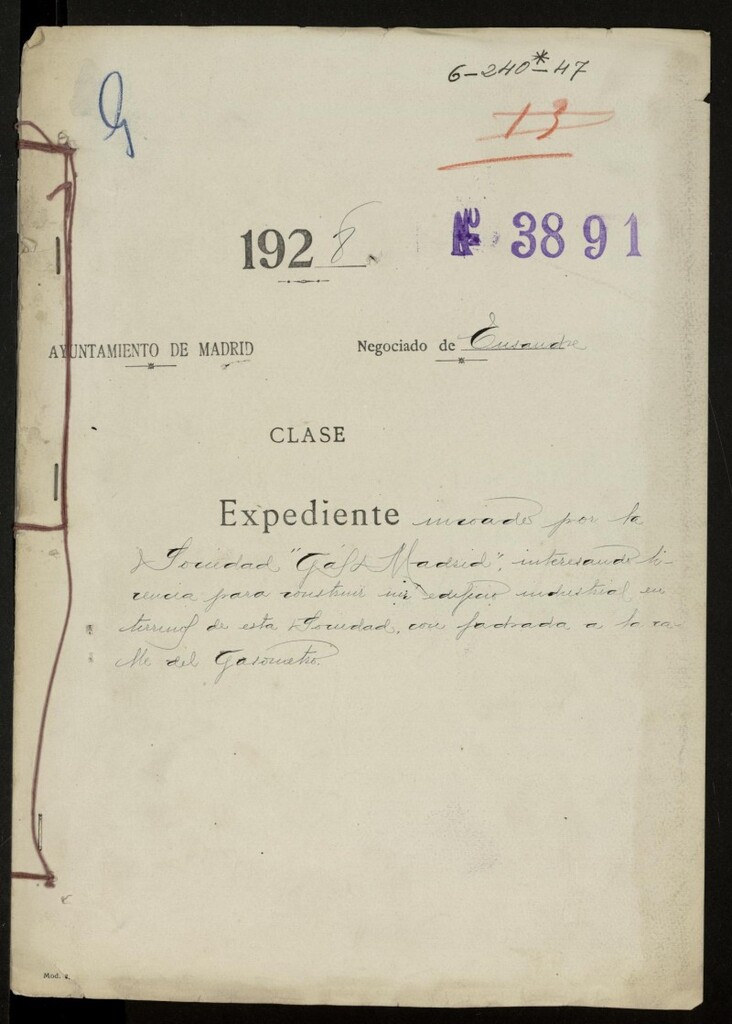 6-240*-47
13
G
1928
Nº 3891
AYUNTAMIENTO DE MADRID
Negociado de Ensanche
CLASE
Expediente incoado por la
Sociedad "Gas Madrid", interesando li-
cencia para construir un edificio industrial, en
terrenos de esta Sociedad, con fachada a la ca-
lle del Gasometro.
Mod.